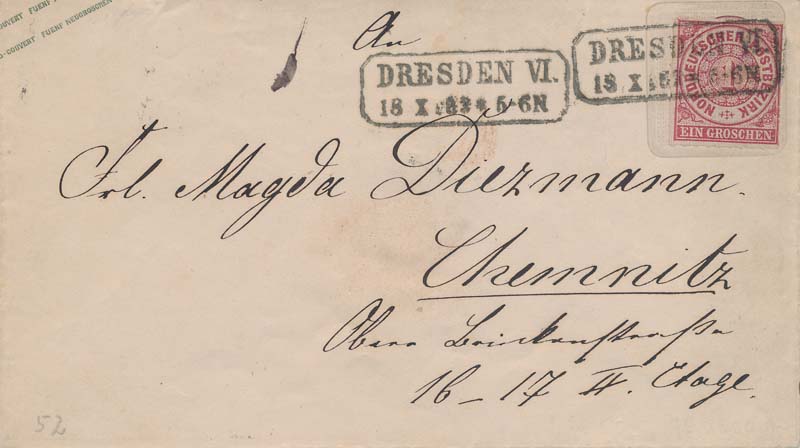 COUVERT FUENF NEUGROSCHEN
COUVERT FUENF NEUGROSCHEN
An
DRESDEN VI.
18 X 5-6N
DRESD
18 X 5-6N
NORDDEUTSCHER POSTBEZIRK
EIN GROSCHEN
Frl. Magda Diezmann.
Chemnitz
Obere Brückenstraße
16-17 II. Etage.
52